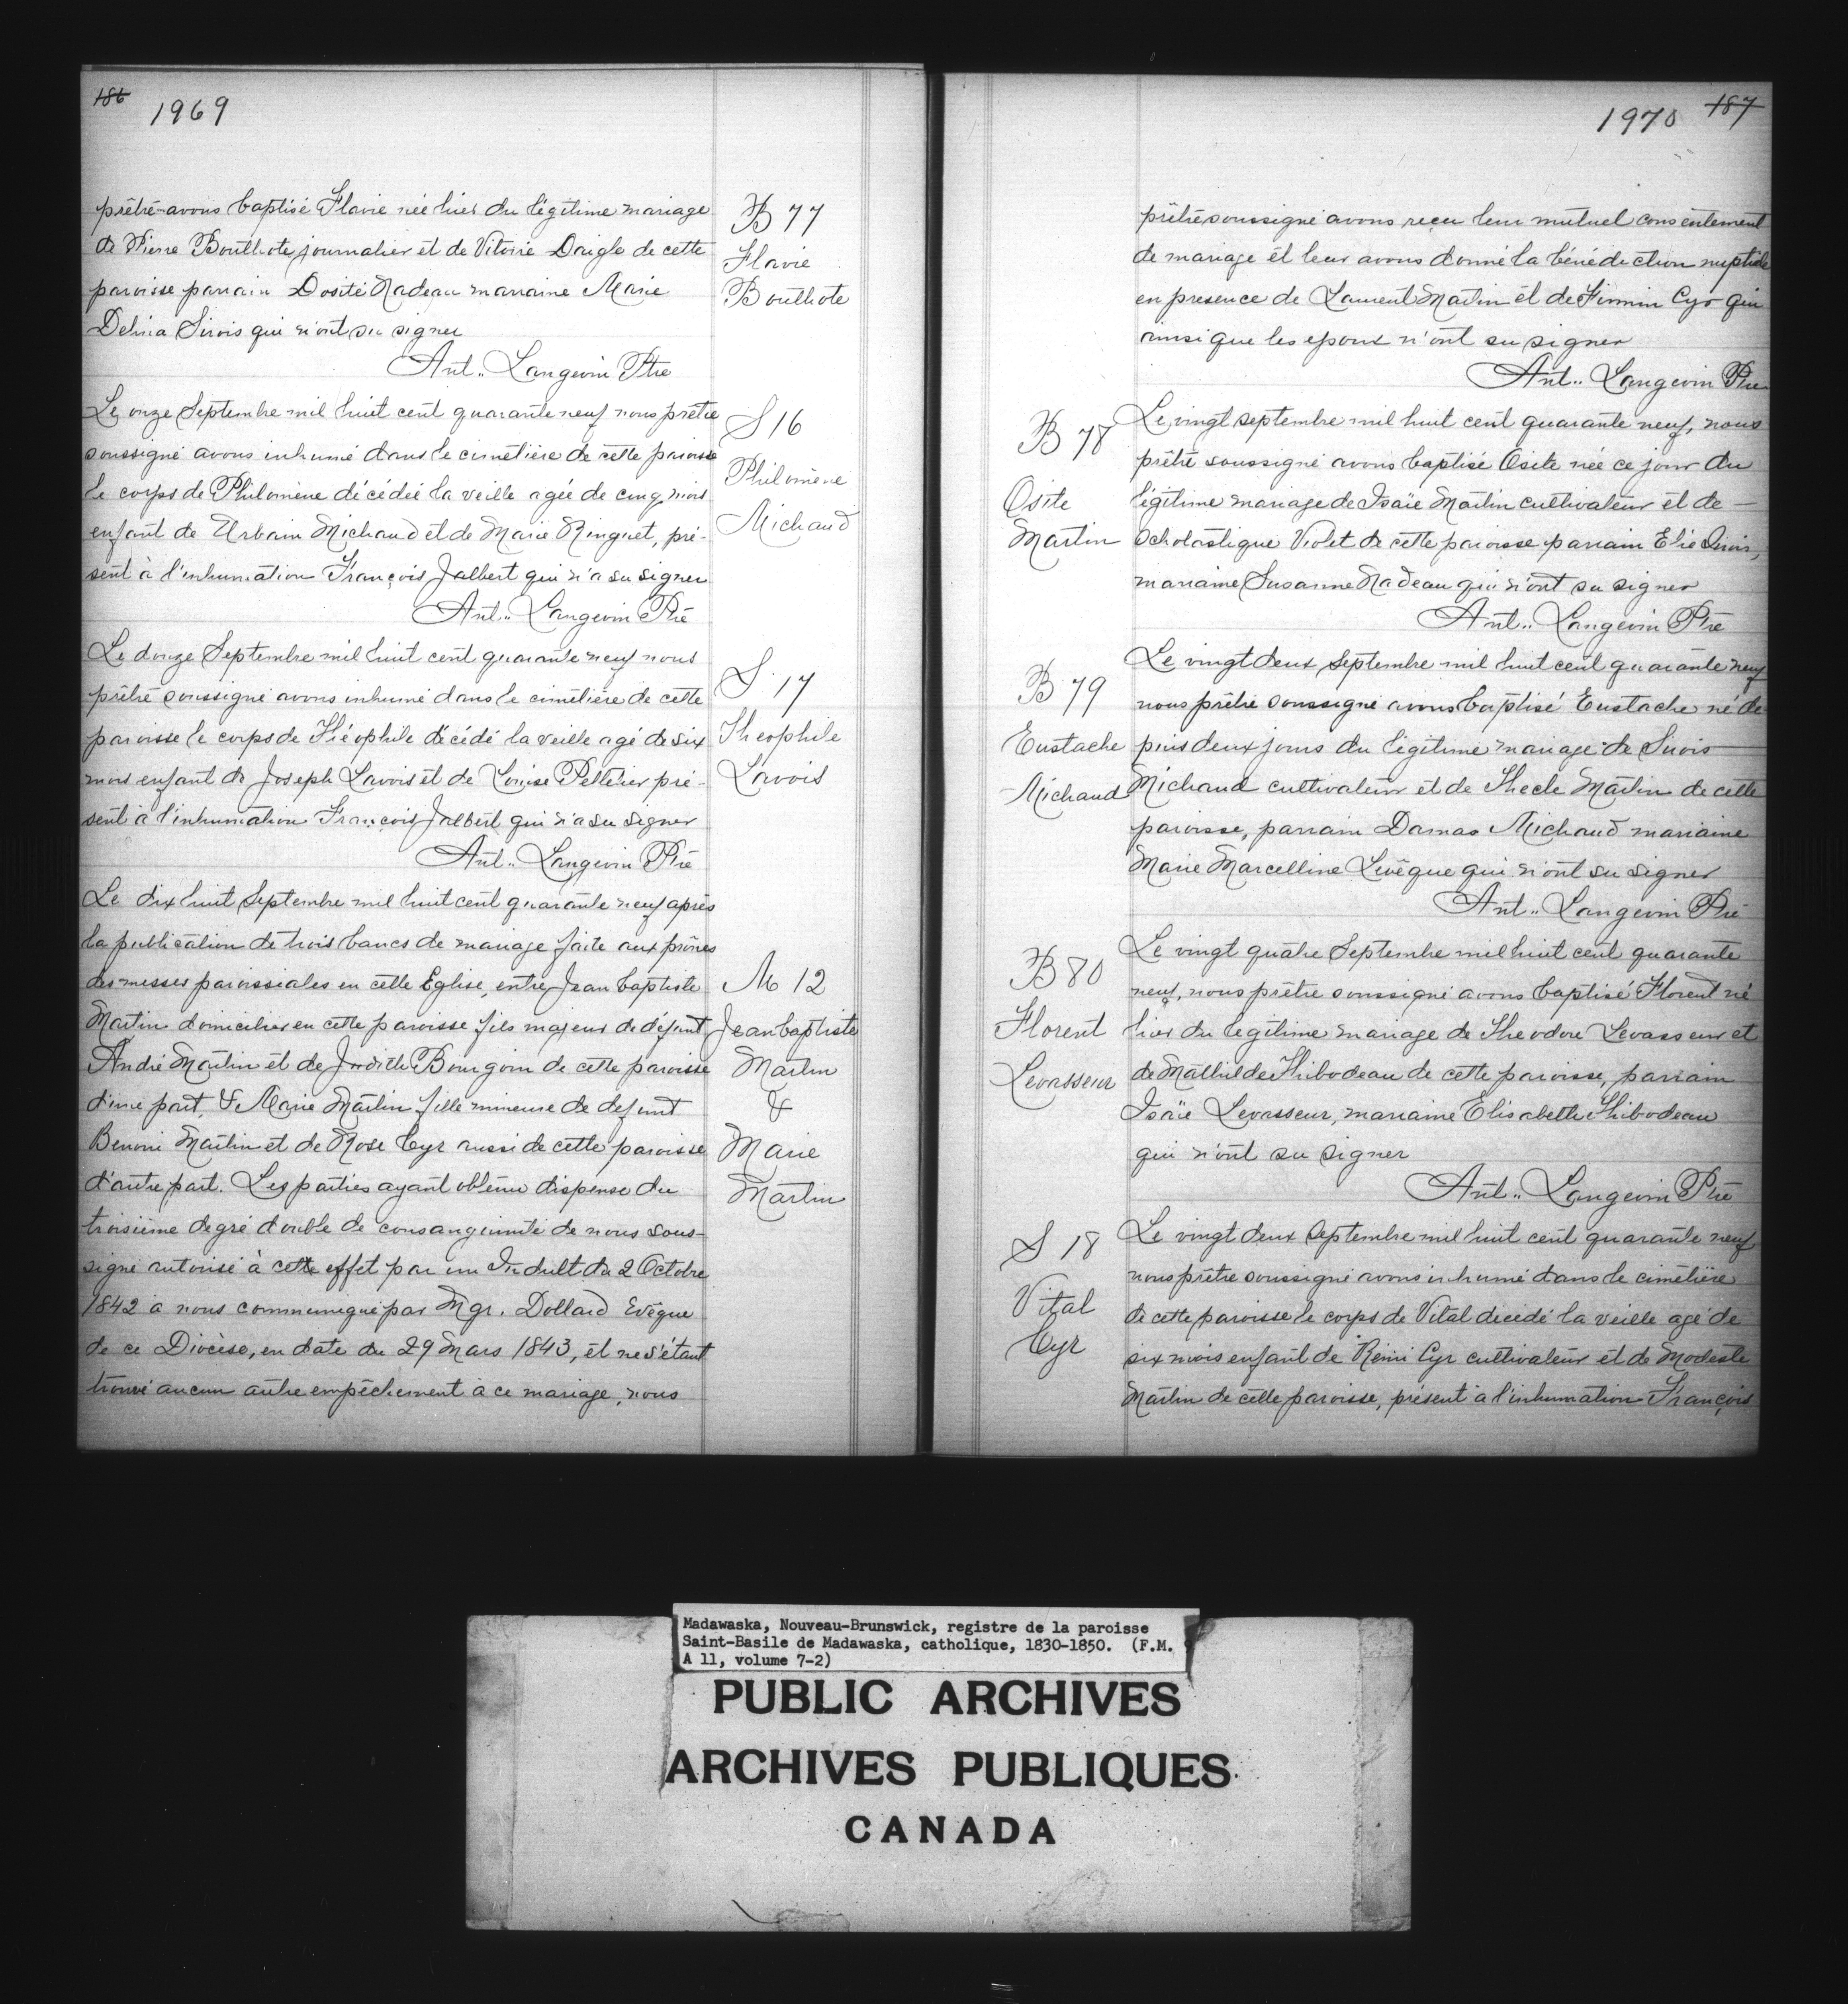 186 1969
prêtre avons baptisé Flavie née hier du légitime mariage
de Pierre Bouthote, journalier et de Vitoire Daigle de cette
paroisse parrain Dosité Nadeau marraine Marie
Delina Sirois qui n'ont su signer
Ant.. Langevin Ptre
B 77
Flavie
Bouthote
Le onze Septembre mil huit cent quarante neuf nous prêtre
soussigné avons inhumé dans le cimetière de cette paroisse
le corps de Philomène décédée la veille agée de cinq mois
enfant de Urbain Michaud et de Marie Ringuet, pré-
sent à l'inhumation François Jalbert qui n'a su signer
Ant.. Langevin Ptre
S 16
Philomène
Michaud
Le douze Septembre mil huit cent quarante neuf nous
prêtre soussigné avons inhumé dans le cimetière de cette
paroisse le corps de Théophile décédé la veille agé de six
mois enfant de Joseph Lavois et de Louise Pelletier pré-
sent à l'inhumation François Jalbert qui n'a su signer
Ant.. Langevin Ptre
S 17
Theophile
Lavois
Le dix huit Septembre mil huit cent quarante neuf après
la publication de trois bancs de mariage faite aux prônes
des messes paroissiales en cette Eglise, entre Jean baptiste
Martin domicilier en cette paroisse fils majeur de défunt
André Martin et de Judith Bourgoin de cette paroisse
d'une part, & Marie Martin fille mineure de defunt
Benoni Martin et de Rose Cyr aussi de cette paroisse
d'autre part. Les parties ayant obtenu dispense du
troisième degré double de consanguinité de nous sous-
signé autorisé à cette effet par un Indult du 2 Octobre
1842 a nous communiqué par Mgr. Dollard Evêque
de ce Diocèse, en date du 29 Mars 1843, et ne s'étant
trouvé aucun autre empêchement à ce mariage, nous
M 12
Jean baptiste
Martin
&
Marie
Martin
1970 187
prêtre soussigné avons reçu leur mutuel consentement
de mariage et leur avons donné la bénédiction nuptiale
en presence de Laurent Martin et de Firmin Cyr qui
ainsi que les epoux n'ont su signer
Ant.. Langevin Ptre
B 78
Osite
Martin
Le vingt septembre mil huit cent quarante neuf, nous
prêtre soussigné avons baptisé Osite née ce jour du
légitime mariage de Isaïe Martin cultivateur et de —
Scholastique Violet de cette paroisse parrain Elie Sirois,
marraine Susanne Nadeau qui n'ont su signer
Ant.. Langevin Ptre
B 79
Eustache
Michaud
Le vingt deux Septembre mil huit cent quarante neuf
nous prêtre soussigné avons baptisé Eustache né de
puis deux jours du légitime mariage de Sirois
Michaud cultivateur et de Thecle Martin de cette
paroisse, parrain Damas Michaud marraine
Marie Marcelline Levêque qui n'ont su signer
Ant.. Langevin Ptre
B 80
Florent
Levasseur
Le vingt quatre Septembre mil huit cent quarante
neuf, nous prêtre soussigné avons baptisé Florent né
hier du légitime mariage de Theodore Levasseur et
de Mathilde Thibodeau de cette paroisse, parrain
Isaïe Levasseur, marraine Elisabeth Thibodeau
qui n'ont su signer
Ant.. Langevin Ptre
S 18
Vital
Cyr
Le vingt deux Septembre mil huit cent quarante neuf
nous prêtre soussigné avons inhumé dans le cimetière
de cette paroisse le corps de Vital décédé la veille agé de
six mois enfant de Rémi Cyr cultivateur et de Modeste
Martin de cette paroisse, présent à l'inhumation François
Madawaska, Nouveau-Brunswick, registre de la paroisse
Saint-Basile de Madawaska, catholique, 1830-1850. (F.M.
A 11, volume 7-2)
PUBLIC ARCHIVES
ARCHIVES PUBLIQUES
CANADA